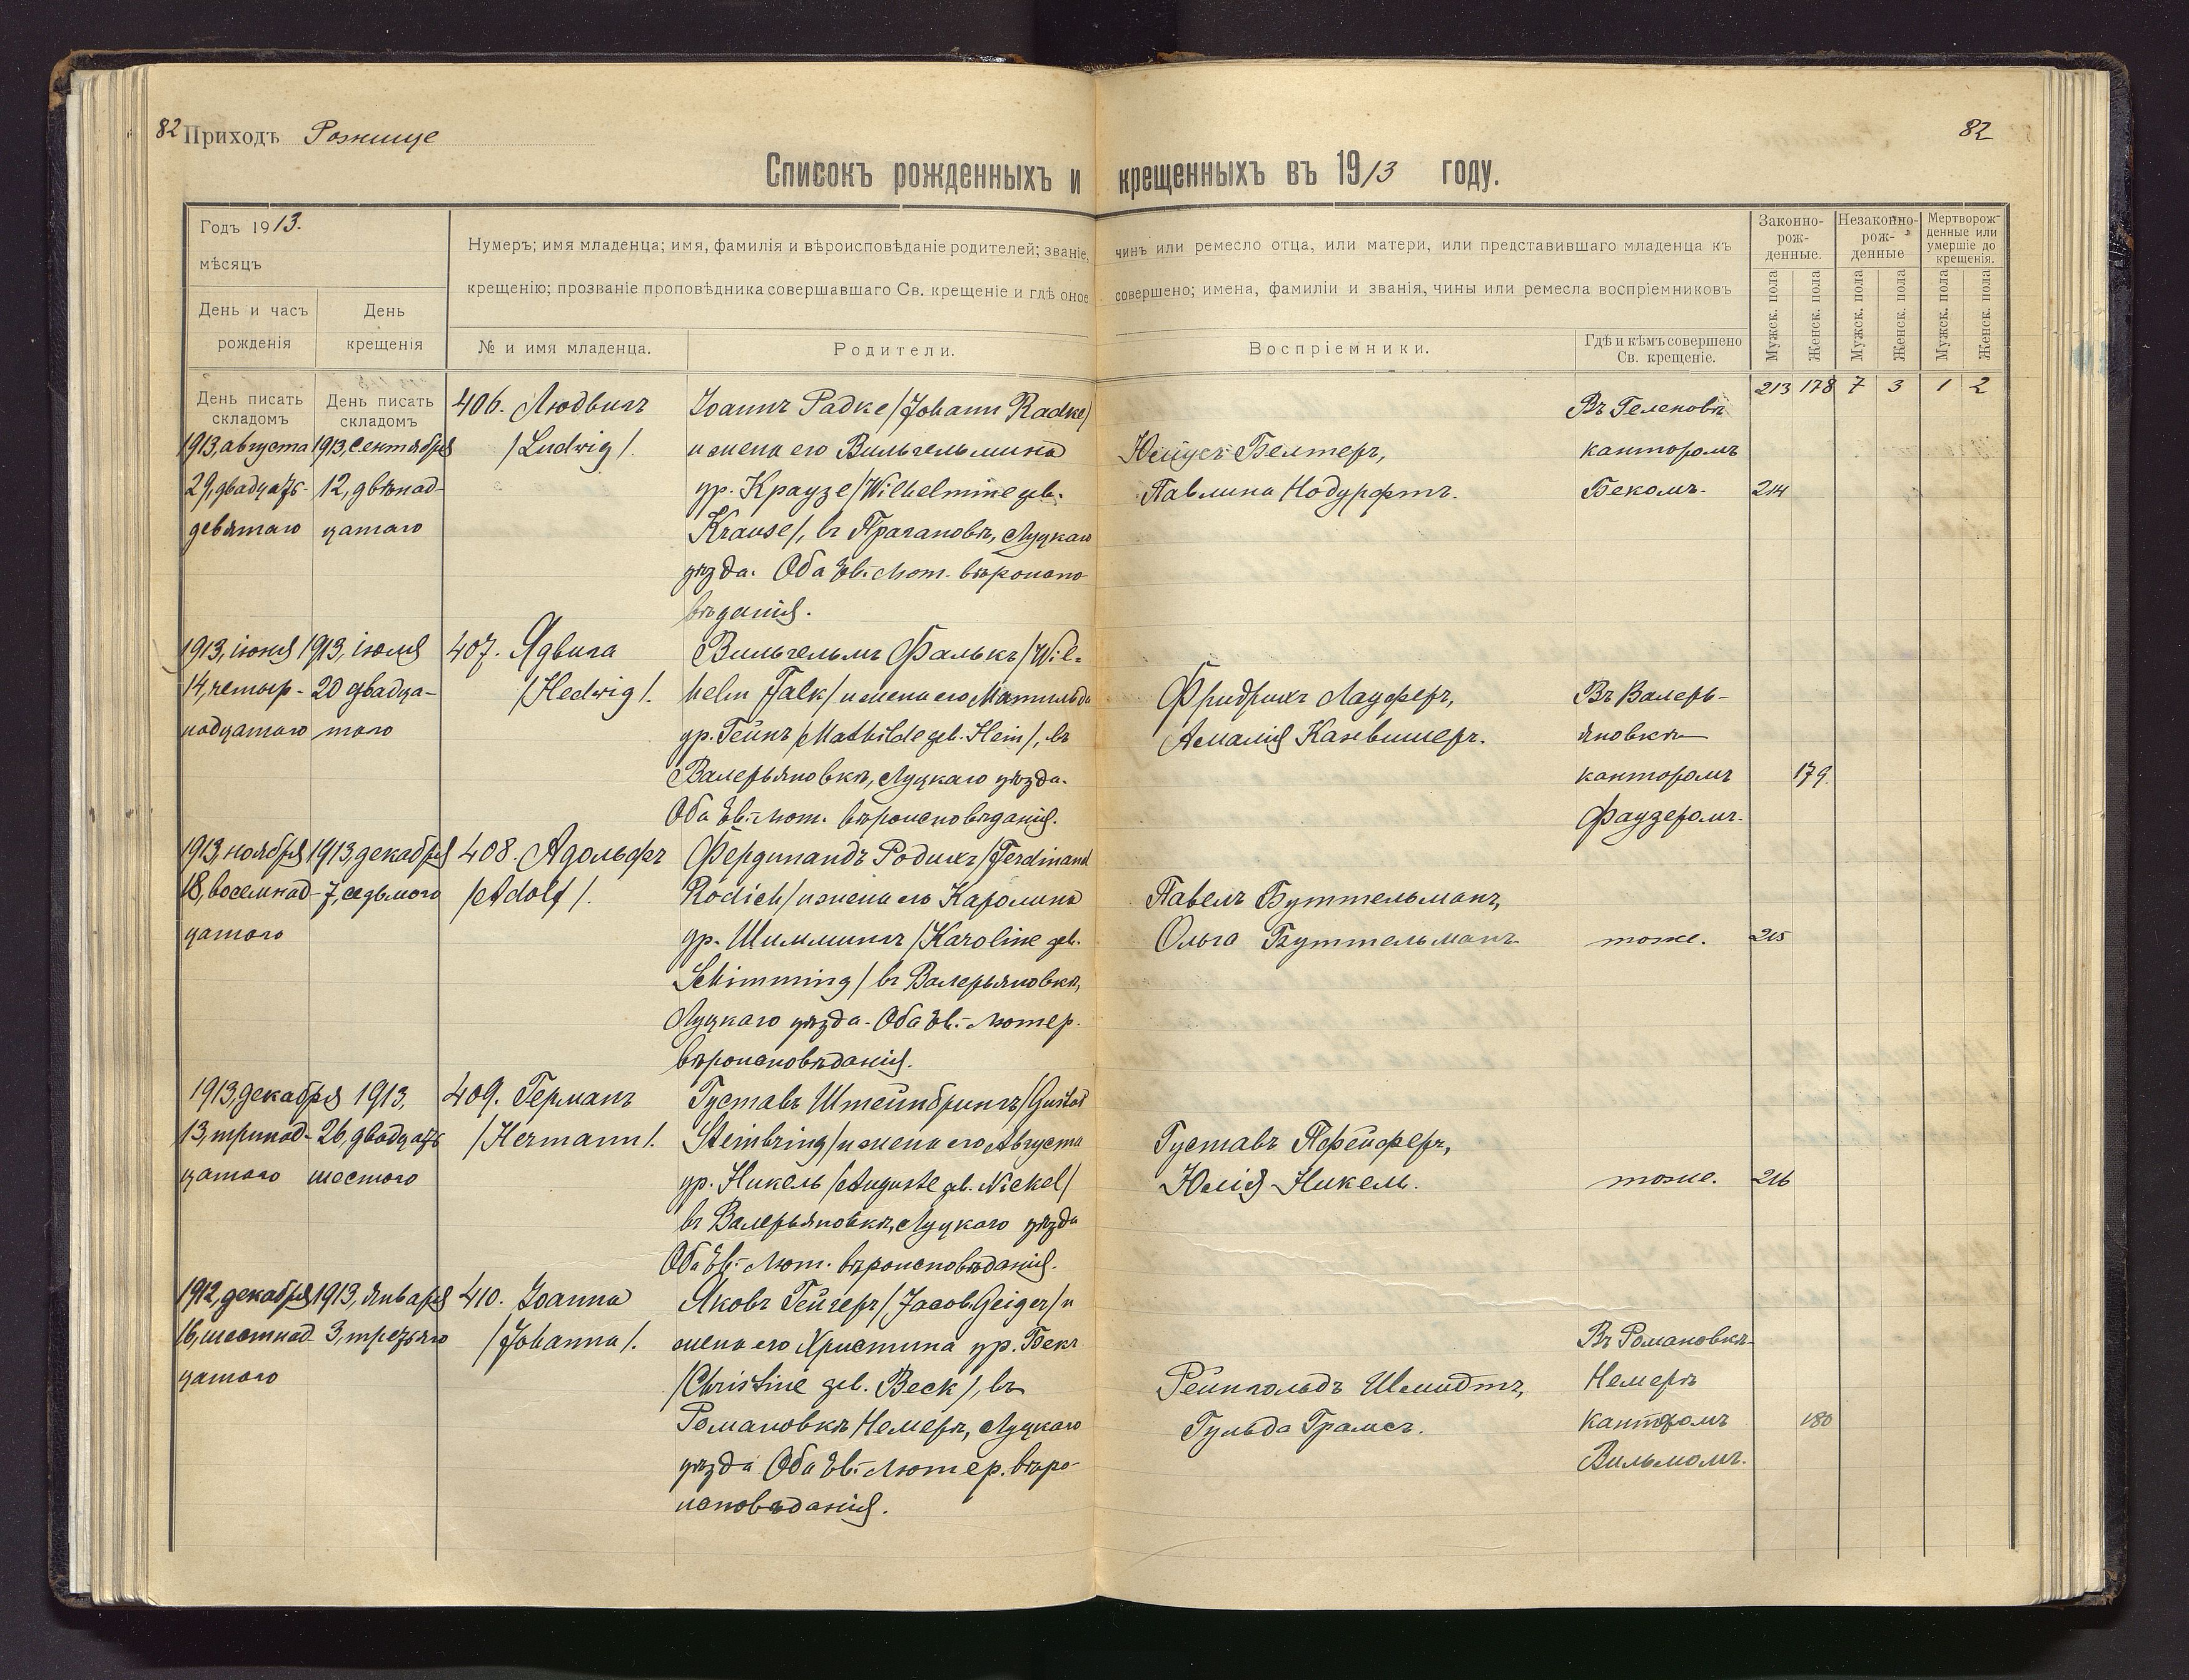 82 Приходъ Рожище
82
Списокъ рожденныхъ и крещенныхъ въ 1913 году.
Годъ 1913.
мѣсяцъ
День и часъ рожденія
День крещенія
Нумеръ; имя младенца; имя, фамилія и вѣроисповѣданіе родителей; званіе, чинъ или ремесло отца, или матери, или представившаго младенца къ
крещенію; прозваніе проповѣдника совершавшаго Св. крещеніе и гдѣ оное совершено; имена, фамиліи и званія, чины или ремесла воспріемниковъ
№ и имя младенца.
Родители.
Воспріемники.
Гдѣ и кѣмъ совершено Св. крещеніе.
Законно-рож-денные.
Незаконно-рож-денные
Мертворож-денные или умершіе до крещенія.
Мужск. пола
Женск. пола
Мужск. пола
Женск. пола
Мужск. пола
Женск. пола
День писать складомъ
День писать складомъ
213 178 7 3 1 2
1913, августа
29, двадцать
девятаго
1913, сентября
12, двѣнад-
цатаго
406. Людвигъ
/Ludwig/.
Іоаннъ Радке /Johann Radke/
и жена его Вильгельмина
ур. Краузе /Wilhelmine geb.
Krause/, въ Прагановкѣ, Луцкаго
уѣзда. Оба Ев.-Лют. вѣроиспо-
вѣданія.
Юліусъ Белтеръ,
Павлина Нодурфтъ.
Въ Геленовкѣ
канторомъ
Бекомъ.
214
1913, іюня
14, четыр-
надцатаго
1913, іюля
20 двадца-
таго
407. Ядвига
/Hedwig/.
Вильгельмъ Фалькъ /Wil-
helm Falk/ и жена его Матильда
ур. Гейнъ /Mathilde geb. Hein/, въ
Валерьяновкѣ, Луцкаго уѣзда.
Оба Ев.-Лют. вѣроисповѣданія.
Фридрихъ Лауферъ,
Амалія Канвишеръ.
Въ Валерь-
яновкѣ
канторомъ
Фаузеромъ.
179
1913, ноября
18, восемнад-
цатаго
1913, декабря
7, седьмого
408. Адольфъ
/Adolf/.
Фердинандъ Родихъ /Ferdinand
Rodich/ и жена его Каролина
ур. Шиммингъ /Karoline geb.
Schimming/ въ Валерьяновкѣ,
Луцкаго уѣзда. Оба Ев.-Лютер.
вѣроисповѣданія.
Павелъ Буттельманъ,
Ольга Буттельманъ
тоже.
215
1913, декабря
13, тринад-
цатаго
1913,
26, двадцать
шестого
409. Германъ
/Hermann/.
Густавъ Штейнбрингъ /Gustav
Steinbring/ и жена его Августа
ур. Никель /Auguste geb. Nickel/
въ Валерьяновкѣ, Луцкаго уѣзда
Оба Ев.-Лют. вѣроисповѣданія.
Густавъ Пфейферъ,
Юлія Никель.
тоже.
216
1912, декабря
16, шестнад-
цатаго
1913, января
3, третьяго
410. Іоанна
/Johanna/.
Яковъ Гейгеръ /Jacob Geiger/ и
жена его Христина ур. Бекъ
/Christine geb. Beck/, въ
Романовкѣ Немеръ, Луцкаго
уѣзда Оба Ев.-Лютер. вѣро-
исповѣданія.
Рейнгольдъ Шмидтъ,
Гульда Грамсъ.
Въ Романовкѣ
Немеръ
канторомъ
Вильмомъ.
180